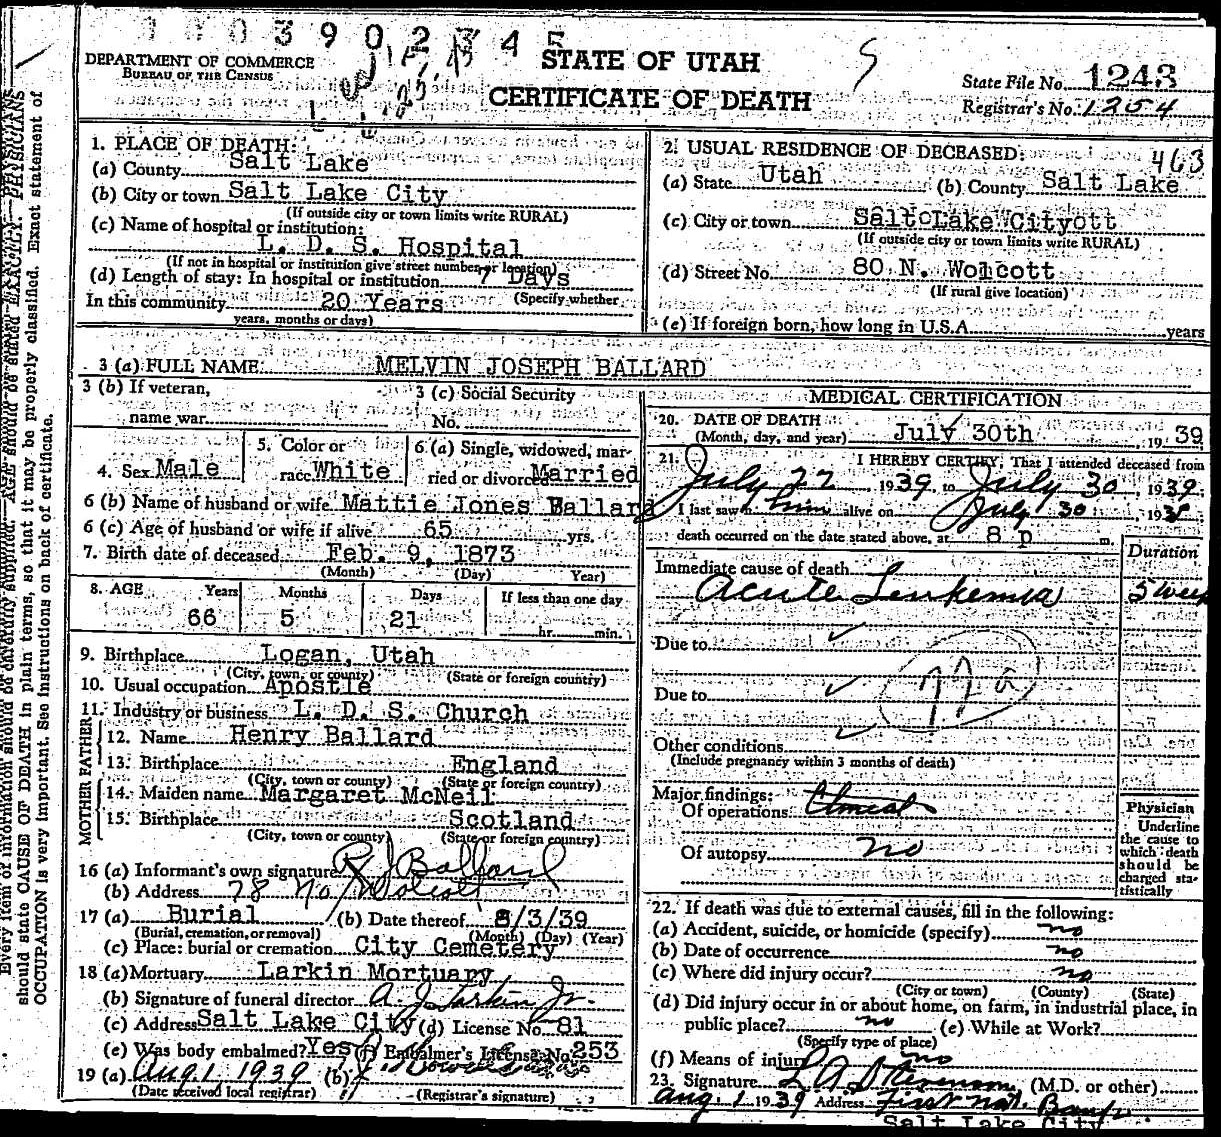 0 0 0 3 9 0 2 3 4 5
DEPARTMENT OF COMMERCE
BUREAU OF THE CENSUS
STATE OF UTAH
CERTIFICATE OF DEATH
State File No. 1243
Registrar's No. 1254
1. PLACE OF DEATH:
(a) County Salt Lake
(b) City or town Salt Lake City
(If outside city or town limits write RURAL)
(c) Name of hospital or institution:
L. D. S. Hospital
(If not in hospital or institution give street number or location)
(d) Length of stay: In hospital or institution 7 Days
In this community 20 Years (Specify whether
years, months or days)
2. USUAL RESIDENCE OF DECEASED: 463
(a) State Utah (b) County Salt Lake
(c) City or town Salt Lake City
(If outside city or town limits write RURAL)
(d) Street No. 80 N. Wolcott
(If rural give location)
(e) If foreign born, how long in U.S.A. years
3 (a) FULL NAME: MELVIN JOSEPH BALLARD
3 (b) If veteran,
name war
3 (c) Social Security
No.
4. Sex Male
5. Color or
race White
6 (a) Single, widowed, mar-
ried or divorced Married
6 (b) Name of husband or wife Mattie Jones Ballard
6 (c) Age of husband or wife if alive 65 yrs.
7. Birth date of deceased Feb. 9, 1873
(Month) (Day) Year)
8. AGE Years Months Days If less than one day
66 5 21 hr. min.
9. Birthplace Logan, Utah
(City, town, or county) (State or foreign country)
10. Usual occupation Apostle
11. Industry or business L. D. S. Church
FATHER
12. Name Henry Ballard
13. Birthplace England
(City, town or county) (State or foreign country)
MOTHER
14. Maiden name Margaret McNeil
15. Birthplace Scotland
(City, town or county) (State or foreign country)
16 (a) Informant's own signature Ballard
(b) Address 78 No
17 (a) Burial (b) Date thereof 8/3/39
(Burial, cremation, or removal) (Month) (Day) (Year)
(c) Place: burial or cremation City Cemetery
18 (a) Mortuary Larkin Mortuary
(b) Signature of funeral director A. J. Larkin Jr.
(c) Address Salt Lake City (d) License No. 81
(e) Was body embalmed? Yes (f) Embalmer's License No. 253
19 (a) Aug. 1, 1939 (b)
(Date received local registrar) (Registrar's signature)
MEDICAL CERTIFICATION
20. DATE OF DEATH
(Month, day, and year) July 30th 19 39
21. I HEREBY CERTIFY, That I attended deceased from
July 22, 1939, to July 30, 1939.
I last saw him alive on July 30, 193
death occurred on the date stated above, at 8 p m.
Duration
Immediate cause of death
Acute Leukemia 5 week
Due to
Due to
Other conditions
(Include pregnancy within 3 months of death)
Major findings:
Of operations Clinical
Of autopsy no
Physician
Underline
the cause to
which death
should be
charged sta-
tistically
22. If death was due to external causes, fill in the following:
(a) Accident, suicide, or homicide (specify) no
(b) Date of occurrence no
(c) Where did injury occur? no
(City or town) (County) (State)
(d) Did injury occur in or about home, on farm, in industrial place, in
public place? no (e) While at Work?
(Specify type of place)
(f) Means of injury no
23. Signature L. A. Stevenson (M.D. or other)
Aug. 1 1939 Address First Nat. Bank
Salt Lake City
Every item of information should be carefully supplied. AGE should be stated EXACTLY. PHYSICIANS
should state CAUSE OF DEATH in plain terms, so that it may be properly classified. Exact statement of
OCCUPATION is very important. See instructions on back of certificate.